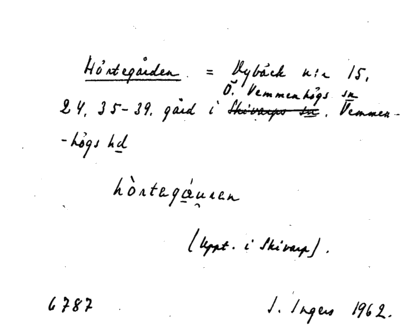 Hörtegården = Dybäck n:r 15,
Ö. Vemmenhögs sn
24, 35-39. gård i Skivarps sn, Vemmen-
-högs hd
hòrtegá̱uren
(Uppt. i Skivarp).
6787 I. Ingers 1962.